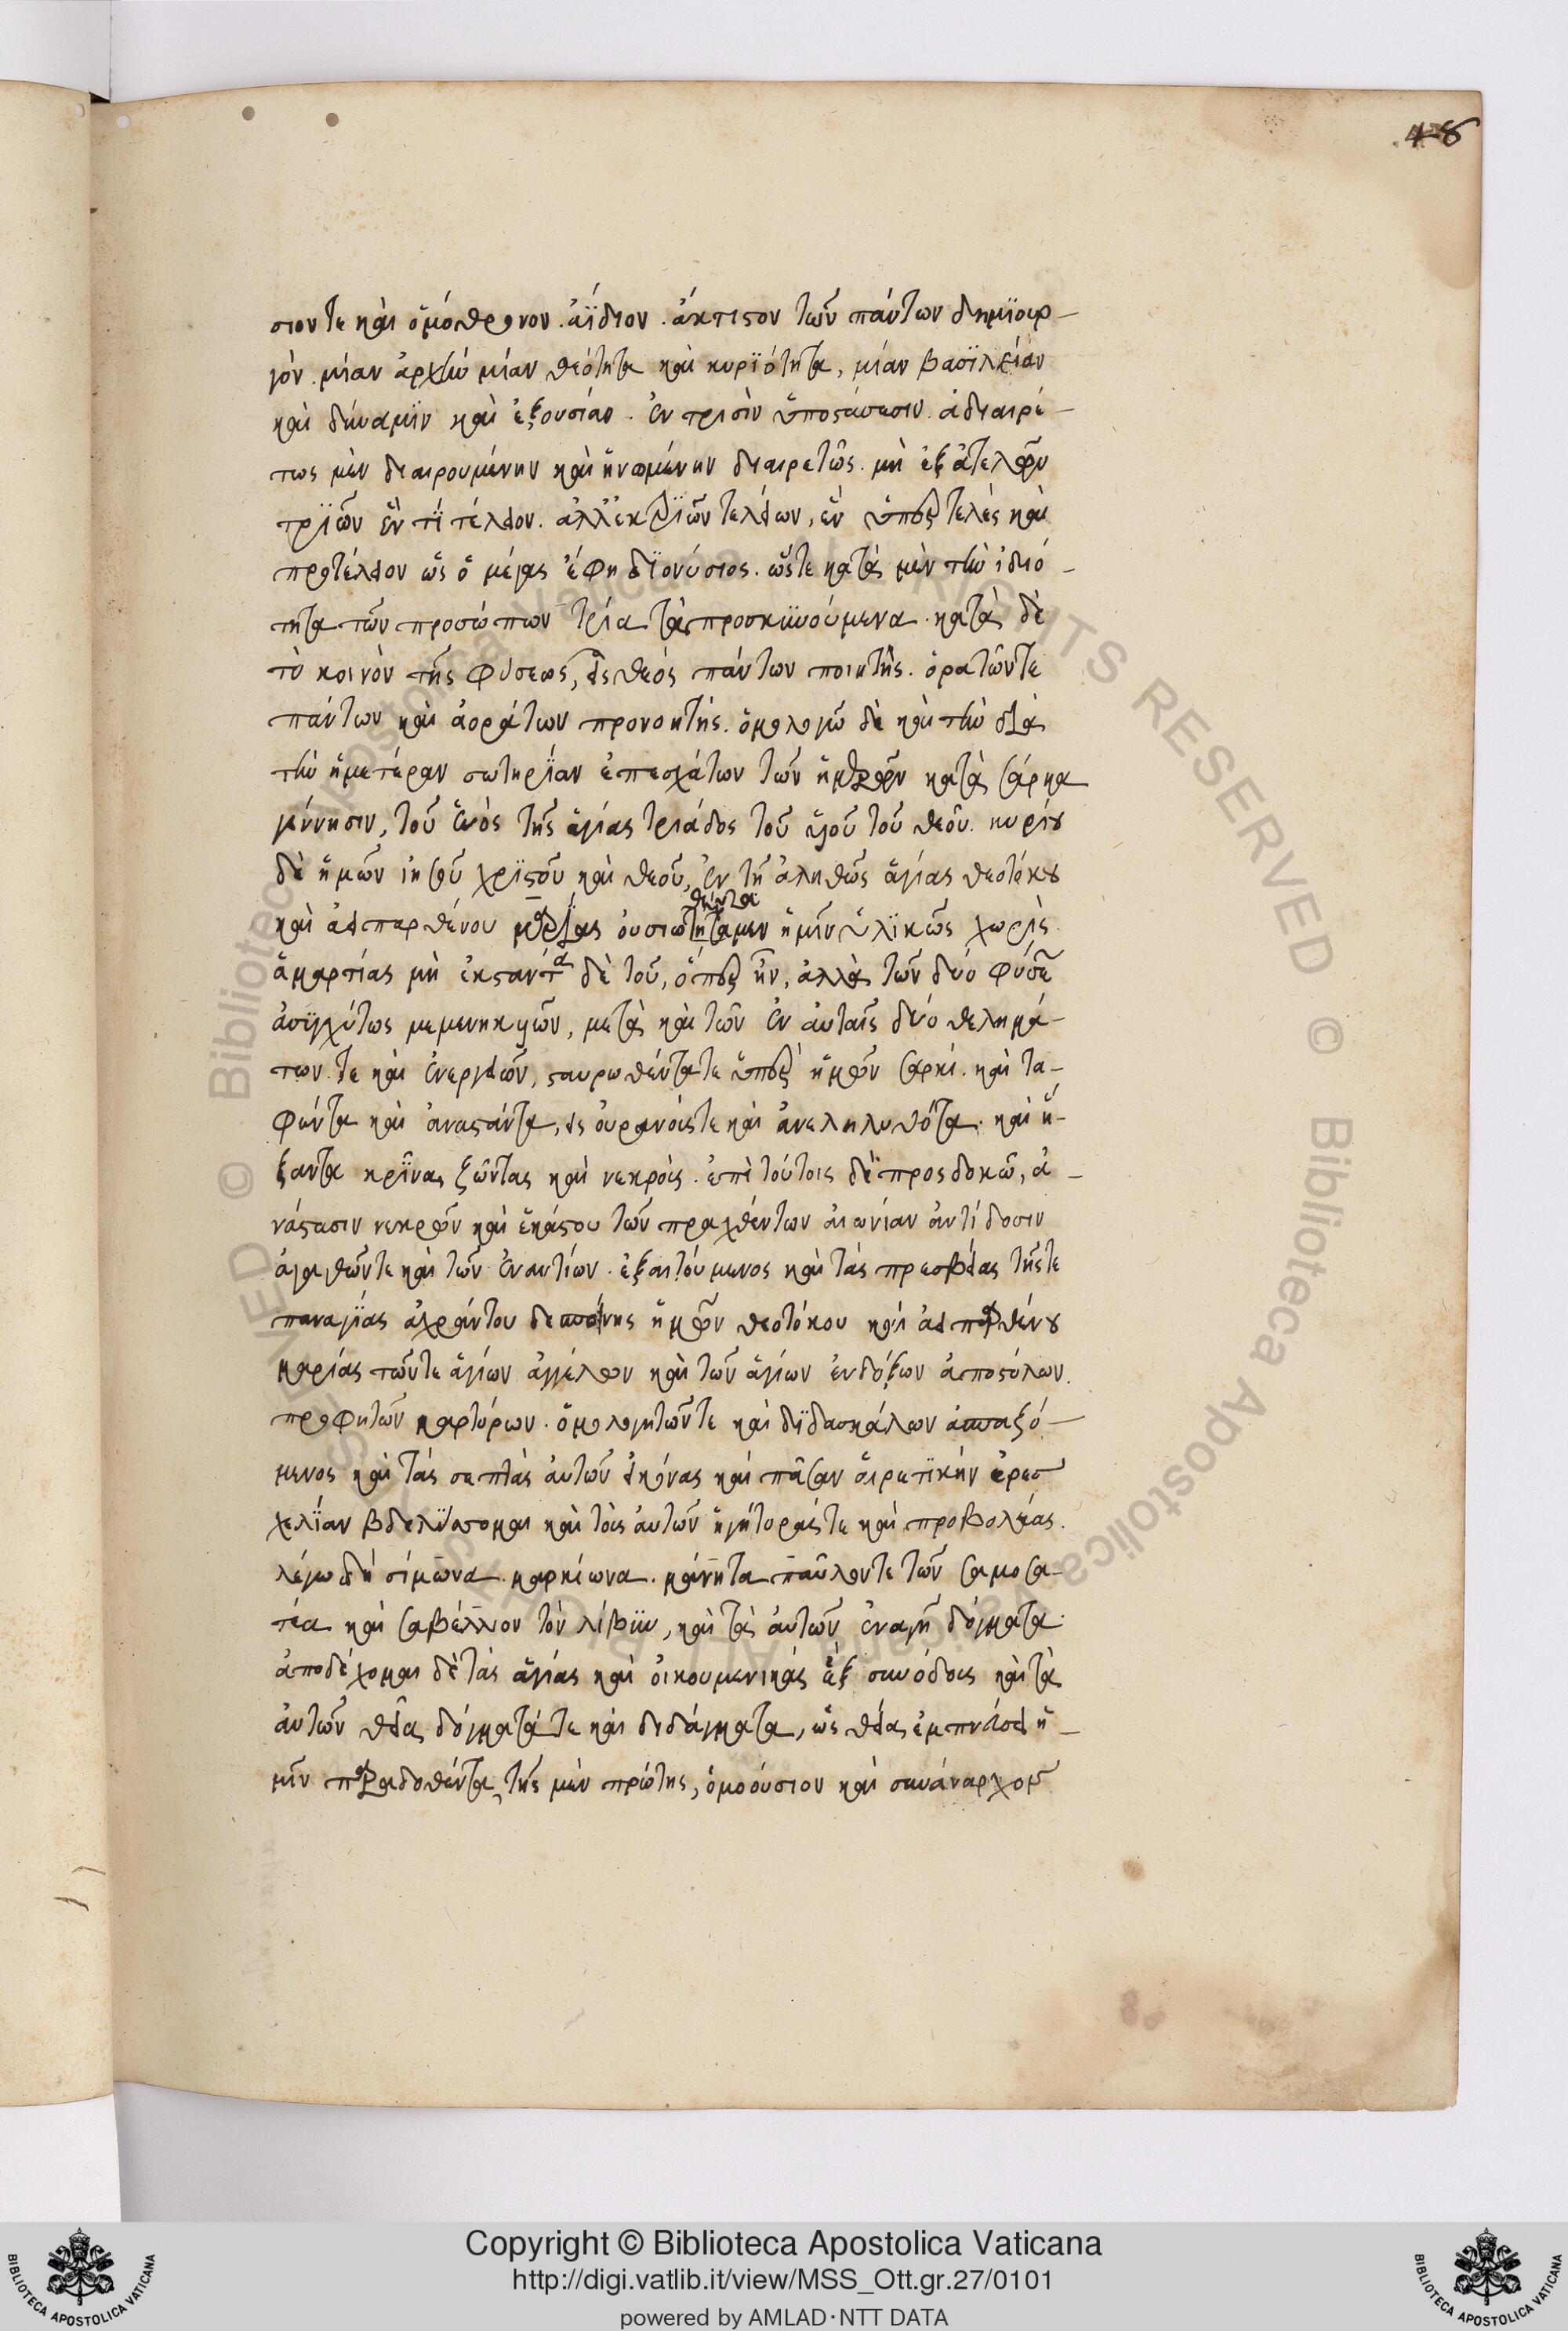 48
σιον τε καὶ ὁμόθρονον. ἀΐδιον. ἄκτιστον τῶν πάντων δημϊουρ-
γόν. μίαν ἀρχὴν μίαν θεότητα καὶ κυρϊότητα, μίαν βασϊλείαν
καὶ δύναμϊν καὶ ἐξουσίαν. ἐν τρισὶν ὑποστάσεσιν. ἀδιαιρέ-
τως μὲν διαιρουμένην καὶ ἡνωμένην διαιρετῶς. μὴ ἐξ ἀτελῶν
τρϊῶν ἕν τϊ τέλειον. ἀλλ' ἐκ τρϊῶν τελείων, ἓν ὑπερτελὲς καὶ
προτέλειον ὡς ὁ μέγας ἔφη δϊονύσιος. ὥστε κατὰ μὲν τὴν ἰδιό-
τητα τῶν προσώπων τρία τὰ προσκϋνούμενα. κατὰ δὲ
τὸ κοινὸν τῆς φύσεως, εἷς θεός πάντων ποιητὴς. ὁρατῶν τε
πάντων καὶ ἀοράτων προνοητής. ὁμολογῶ δὲ καὶ τὴν διὰ
τὴν ἡμετέραν σωτηρΐαν ἐπεσχάτων τῶν ἡμερῶν κατὰ σάρκα
γέννησιν, τοῦ ἑνὸς τῆς ἁγίας τριάδος τοῦ υἱοῦ τοῦ θεοῦ. κυρίου
δὲ ἡμῶν ἰησοῦ χρϊστοῦ καὶ θεοῦ, ἐν τῆ ἀληθῶς ἁγίας θεοτόκου
θέντα
καὶ ἀειπαρθένου μαρΐας οὐσιωτητα μεν ἡμῖν ὑλϊκῶς χωρὶς
ἁμαρτίας μὴ ἐκστάντα δὲ τοῦ, ὅπερ ἦν, ἀλλὰ τῶν δύο φύσε
ἀσϋγχύτως μεμενηκυιῶν, μετὰ καὶ τῶν ἐν αὐταῖς δύο θελημά-
των τε καὶ ἐνεργειῶν, σταυρωθέντα τε ὑπὲρ ἡμῶν σαρκί. καὶ τα-
φέντα καὶ ἀναστάντα, εἰς οὐρανούς τε καὶ ἀνεληλυθότα. καὶ ἥ-
ξαντα κρῖναι ζῶντας καὶ νεκρούς. ἐπὶ τούτοις δὲ προσδοκῶ, ἀ-
νάστασιν νεκρῶν καὶ ἑκάστου τῶν πραχθέντων αἰωνίαν ἀντίδοσιν
ἀγαθῶν τε καὶ τῶν ἐναντίων. ἐξαιτούμενος καὶ τάς πρεσβείας τῆς τε
παναγίας ἀχράντου δεσποίνης ἡμῶν θεοτόκου καὶ ἀειπαρθένου
μαρίας τῶν τε ἁγίων ἀγγέλων καὶ τῶν ἁγίων ἐνδόξων ἀποστόλων.
προφητῶν μαρτύρων. ὁμολογητῶν τε καὶ δϊδασκάλων ἀσπαζό-
μενος καὶ τάς σεπτὰς αὐτῶν εἰκόνας καὶ πᾶσαν αἱρετϊκὴν ἐρεσ
χελΐαν βδελΰσσομαι καὶ τοὺς αὐτῶν ἡγήτοράς τε καὶ προβολέας.
λέγω δὴ σίμωνα. μαρκίωνα. μάνητα παῦλόν τε τῶν σαμοσα-
τέα καὶ σαβέλλιον τὸν λίβϋν, καὶ τὰ αὐτῶν ἐναγῆ δόγματα.
ἀποδέχομαι δὲ τὰς ἁγίας καὶ οἰκουμενικάς ἓξ συνόδους καὶ τὰ
αὐτῶν θεῖα δόγματά τε καὶ διδάγματα, ὡς θείας ἐμπνεύσει ἡ-
μῖν παραδοθέντα, τῆς μὲν πρώτης, ὁμοούσιον καὶ συνάναρχον
Copyright © Biblioteca Apostolica Vaticana
http://digi.vatlib.it/view/MSS_Ott.gr.27/0101
powered by AMLAD·NTT DATA